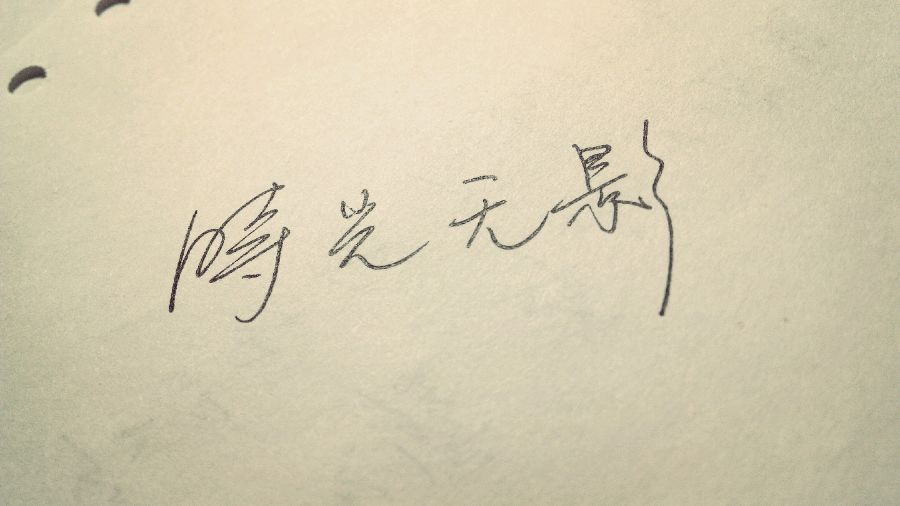 時光无影